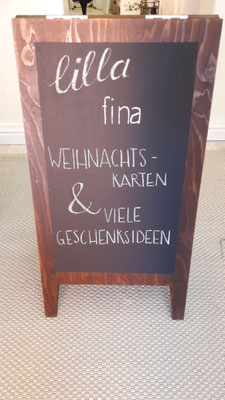 lilla
fina
WEIHNACHTS-
KARTEN
& VIELE
GESCHENKSIDEEN